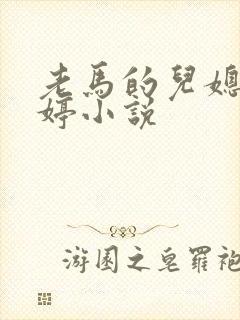 老馬的兒媳
婷小說
游園之皂羅袍